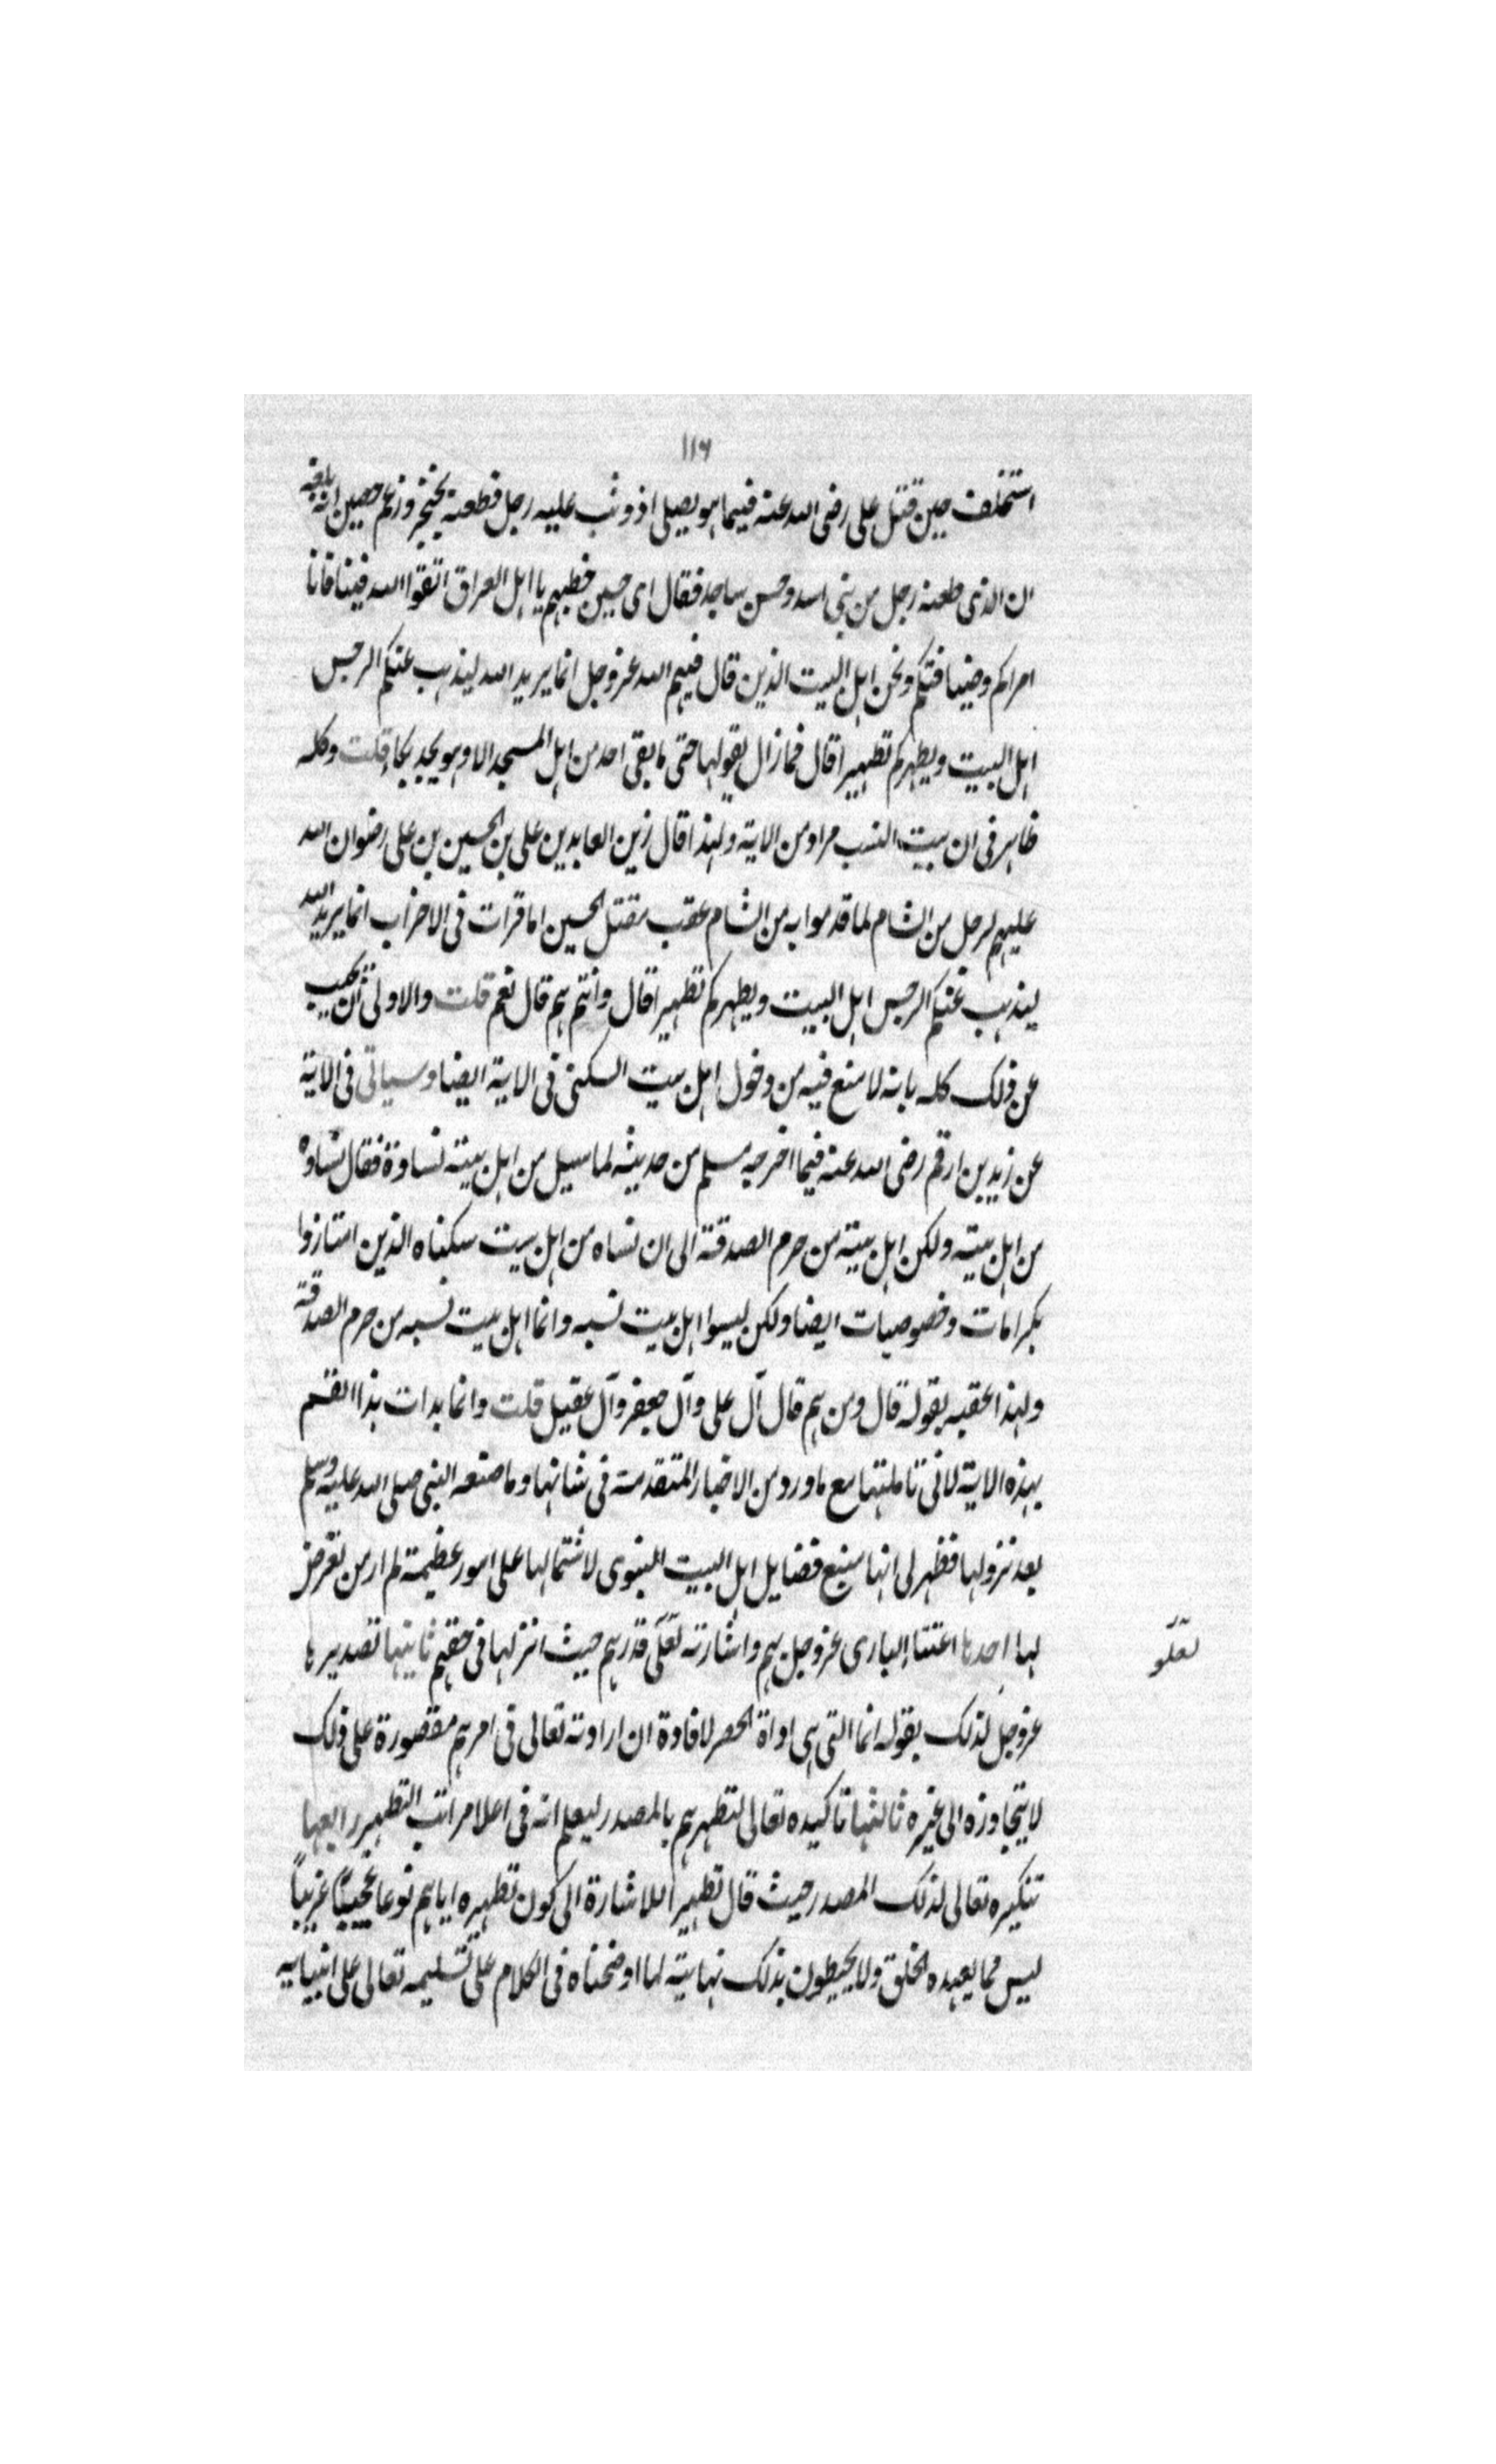 ١١٦
استخلف حين قتل على رضى الله عنه فبينما هو يصلى اذ وثب عليه رجل فطعنه بخنجر وزعم حصين انه بلغه
ان الذى طعنه رجل من بنى اسد وحسن ساجد فقال اى حسين خطبهم يا اهل العراق اتقوا الله فينا فانا
امراكم وضيفانكم ونحن اهل البيت الذين قال فيهم الله عز وجل انما يريد الله ليذهب عنكم الرجس
اهل البيت ويطهركم تطهيرا قال فما زال يقولها حتى ما بقى احد من اهل المسجد الا وهو يجد بكاء قلت وكله
ظاهر فى ان بيت النسب مراد من الاية ولهذا قال زين العابدين على بن الحسين بن على رضوان الله
عليهم لرجل من الشام لما قدموا به من الشام عقب مقتل الحسين اما قرات فى الاحزاب انما يريد الله
ليذهب عنكم الرجس اهل البيت ويطهركم تطهيرا قال وانتم هم قال نعم قلت والاولى ان يجيب
عن ذلك كله بانه لا منع فيه من دخول اهل بيت السكنى فى الاية ايضا وسياتى فى الاية
عن زيد بن ارقم رضى الله عنه فيما اخرجه مسلم من حديثه لما سيل من اهل بيته نساوة فقال نساوه
من اهل بيته ولكن اهل بيته من حرم الصدقة الى ان نساه من اهل بيت سكناه الذين امتازوا
بكرامات وخصوصيات ايضا ولكن ليسوا اهل بيت نسبه وانما اهل بيت نسبه من حرم الصدقة
ولهذا عقبه بقوله قال ومن هم قال آل على وآل جعفر وآل عقيل قلت وانما بدات هذا القسم
بهذه الاية لانى تاملتها مع ما ورد من الاخبار المتقدمة فى شانها وما صنعه النبى صلى الله عليه وسلم
بعد نزولها فظهر لى انها منبع فضايل اهل البيت النبوى لاشتمالها على امور عظيمة لم ار من تعرض
لها احدها اعتناء البارى عز وجل بهم واشارته لعلى قدرهم حيث انزلها فى حقهم ثانيتها تصديرها
لعلو
عز وجل لذلك بقوله انما التى هى اداة الحصر لافادة ان ارادته تعالى فى امرهم مقصورة على ذلك
لا يتجاوزه الى غيره ثالثها تاكيده تعالى لتطهرهم بالمصدر ليعلم انه فى اعلا مراتب التطهير رابعها
تنكيره تعالى لذلك المصدر حيث قال تطهيرا للاشارة الى كون تطهيره اياهم نوعا عجيبًا غريبًا
ليس مما يعهده الخلق ولا يحيطون بذلك نهايته لما اوضحناه فى الكلام على تسليمه تعالى على انبيايه